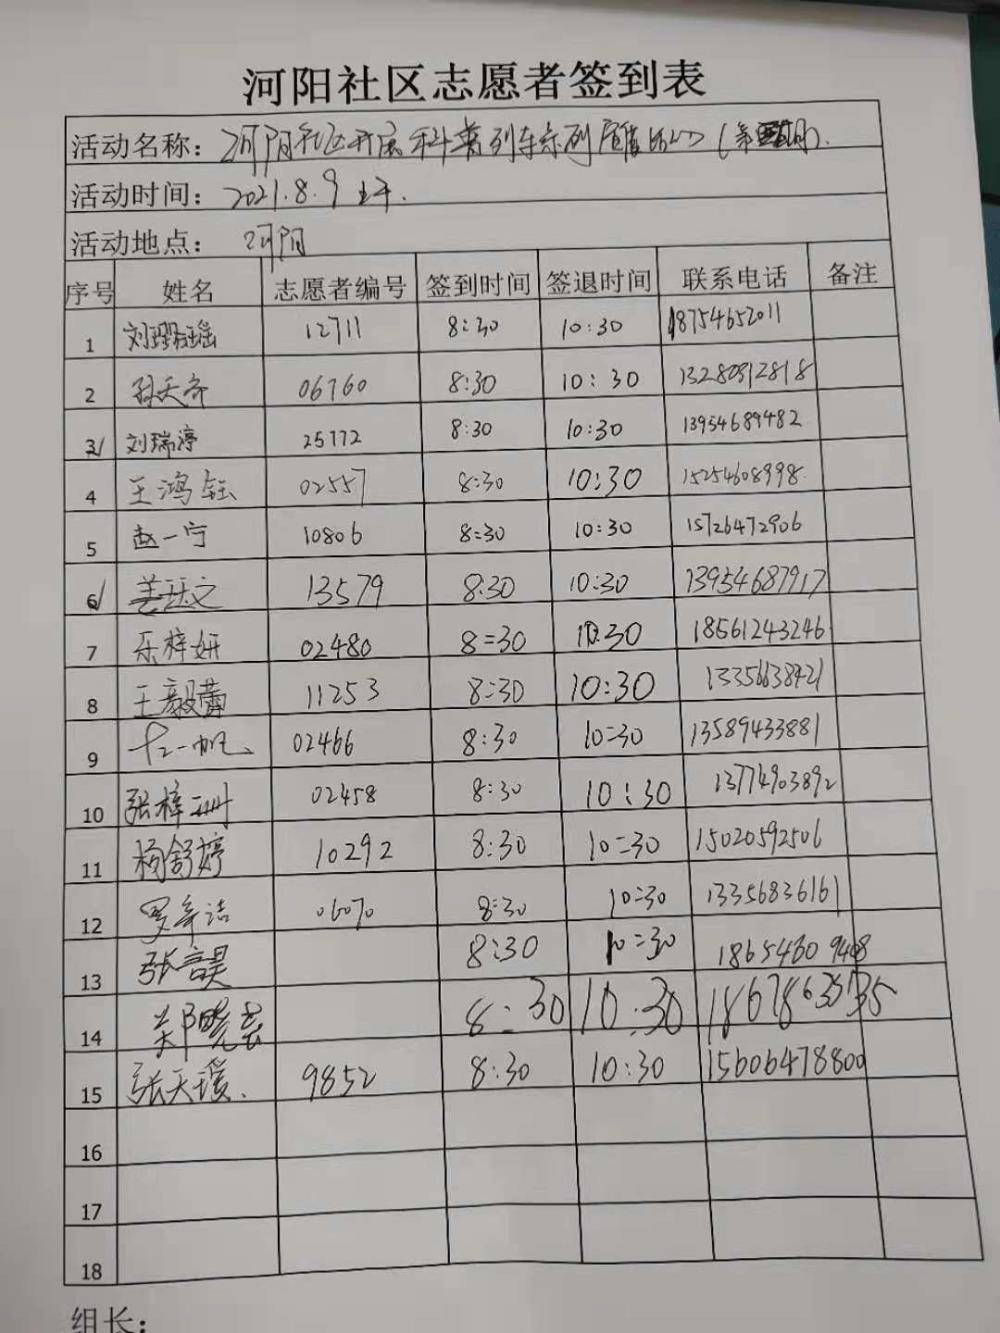 河阳社区志愿者签到表
活动名称：河阳社区开展科普列车系列
活动时间：2021.8.9 上午.
活动地点：河阳
序号 姓名 志愿者编号 签到时间 签退时间 联系电话 备注
1 刘 12711 8:30 10:30 18754652011
2 孙天齐 06760 8:30 10:30 13280312818
3 刘瑞渟 25172 8:30 10:30 13954689482
4 王鸿钰 02557 8:30 10:30 15254608998
5 赵一宁 10806 8:30 10:30 15726472906
6 姜珏文 13579 8:30 10:30 13954687917
7 乐梓妍 02480 8:30 10:30 18561243246
8 王毅蕾 11253 8:30 10:30 13356638421
9 02466 8:30 10:30 13589433881
10 张梓 02458 8:30 10:30 13774903892
11 杨舒婷 10292 8:30 10:30 15020592506
12 罗 06070 8:30 10:30 13356836161
13 张 8:30 10:30 18654609408
14 郑晓芸 8:30 10:30
15 张天瑗. 9852 8:30 10:30 15606478800
16
17
18
组长：